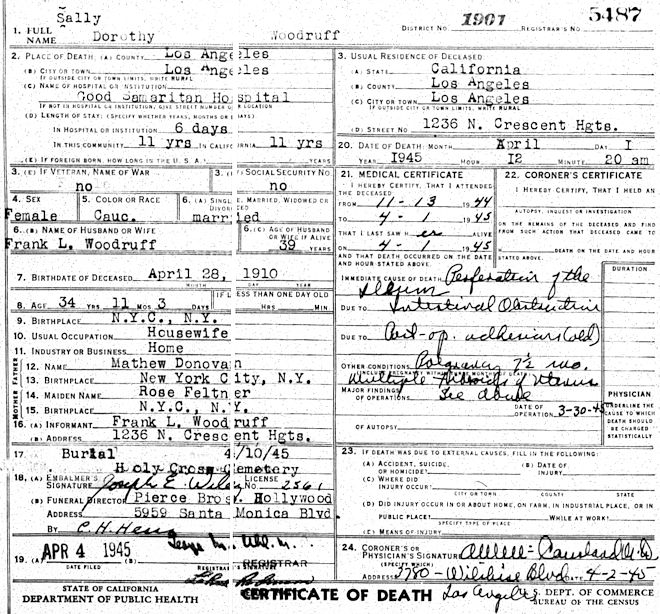 Sally
1. FULL NAME Dorothy Woodruff
DISTRICT NO. 1901 REGISTRAR'S NO. 5487
2. PLACE OF DEATH: (A) COUNTY Los Angeles
(B) CITY OR TOWN Los Angeles
IF OUTSIDE CITY OR TOWN LIMITS, WRITE RURAL
(C) NAME OF HOSPITAL OR INSTITUTION:
Good Samaritan Hospital
IF NOT IN HOSPITAL OR INSTITUTION, GIVE STREET NUMBER OR LOCATION
(D) LENGTH OF STAY: (SPECIFY WHETHER YEARS, MONTHS OR DAYS)
IN HOSPITAL OR INSTITUTION 6 days
IN THIS COMMUNITY 11 yrs IN CALIFORNIA 11 yrs
(E) IF FOREIGN BORN, HOW LONG IN THE U. S. A.? YEARS
3. USUAL RESIDENCE OF DECEASED
(A) STATE California
(B) COUNTY Los Angeles
(C) CITY OR TOWN Los Angeles
IF OUTSIDE CITY OR TOWN LIMITS, WRITE RURAL
(D) STREET NO. 1236 N. Crescent Hgts.
20. DATE OF DEATH: MONTH April DAY 1
YEAR 1945 HOUR 12 MINUTE 20 am
3. (E) IF VETERAN, NAME OF WAR
no
3. SOCIAL SECURITY NO.
no
4. SEX
Female
5. COLOR OR RACE
Cauc.
6. (A) SINGLE, MARRIED, WIDOWED OR
married
6. (B) NAME OF HUSBAND OR WIFE
Frank L. Woodruff
6. (C) AGE OF HUSBAND OR WIFE IF ALIVE
39 YEARS
7. BIRTHDATE OF DECEASED April 28, 1910
MONTH DAY YEAR
8. AGE 34 YRS 11 MOS 3 DAYS
IF LESS THAN ONE DAY OLD
HRS MIN
9. BIRTHPLACE N.Y.C., N.Y.
10. USUAL OCCUPATION Housewife
11. INDUSTRY OR BUSINESS Home
FATHER
12. NAME Mathew Donovan
13. BIRTHPLACE New York City, N.Y.
MOTHER
14. MAIDEN NAME Rose Feltner
15. BIRTHPLACE N.Y.C., N.Y.
16. (A) INFORMANT Frank L. Woodruff
(B) ADDRESS 1236 N. Crescent Hgts.
17. Burial 4/10/45
Holy Cross Cemetery
18. (A) EMBALMER'S SIGNATURE Joseph E. LICENSE NO. 2561
(B) FUNERAL DIRECTOR Pierce Bros. Hollywood
ADDRESS 5959 Santa Monica Blvd
BY C. H.
19. (A) APR 4 1945
DATE FILED
REGISTRAR
21. MEDICAL CERTIFICATE
I HEREBY CERTIFY, THAT I ATTENDED THE DECEASED
FROM 11-13 1944
TO 4-1 1945
THAT I LAST SAW H er ALIVE
ON 4-1 1945
AND THAT DEATH OCCURRED ON THE DATE AND HOUR STATED ABOVE.
22. CORONER'S CERTIFICATE
I HEREBY CERTIFY, THAT I HELD AN
AUTOPSY, INQUEST OR INVESTIGATION
ON THE REMAINS OF THE DECEASED AND FIND FROM SUCH ACTION THAT DECEASED CAME TO
DEATH ON THE DATE AND HOUR STATED ABOVE.
DURATION
IMMEDIATE CAUSE OF DEATH Perforation of the
Ileum
DUE TO Intestinal Obstruction
DUE TO Post-op. adhesions (old)
OTHER CONDITIONS Pregnancy 7½ mo.
Multiple Fibroids of Uterus
MAJOR FINDINGS OF OPERATIONS See Above
DATE OF OPERATION 3-30-45
OF AUTOPSY
PHYSICIAN
UNDERLINE THE CAUSE TO WHICH DEATH SHOULD BE CHARGED STATISTICALLY
23. IF DEATH WAS DUE TO EXTERNAL CAUSES, FILL IN THE FOLLOWING:
(A) ACCIDENT, SUICIDE, OR HOMICIDE?
(B) DATE OF INJURY
(C) WHERE DID INJURY OCCUR?
CITY OR TOWN COUNTY STATE
(D) DID INJURY OCCUR IN OR ABOUT HOME, ON FARM, IN INDUSTRIAL PLACE, OR IN
PUBLIC PLACE? WHILE AT WORK?
SPECIFY TYPE OF PLACE
(E) MEANS OF INJURY
24. CORONER'S OR PHYSICIAN'S SIGNATURE
(SPECIFY WHICH)
ADDRESS 3780-Wilshire Blvd. 4-2-45
Los Angeles
STATE OF CALIFORNIA
DEPARTMENT OF PUBLIC HEALTH
CERTIFICATE OF DEATH
DEPT. OF COMMERCE
BUREAU OF THE CENSUS